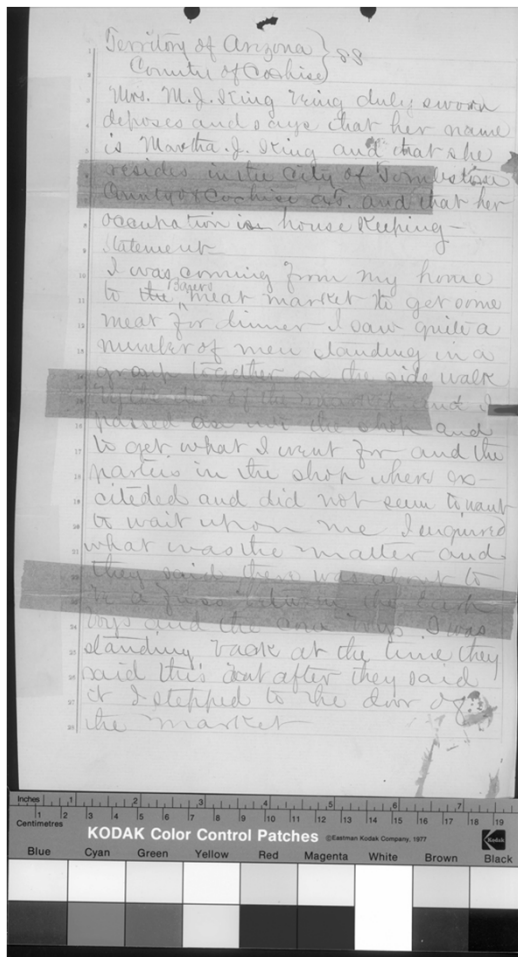 Territory of Arizona } SS
County of Cochise
Mrs. M.J. King being duly sworn
deposes and says that her name
is Martha J. King and that she
resides in the City of Tombstone
County of Cochise A.T. and that her
occupation is house keeping -
Statement
I was coming from my home
to the Bauers meat market to get some
meat for dinner - I saw quite a
number of men standing in a
group together on the side walk
by the door of the market and I
passed on into the shop and
to get what I went for and the
parties in the shop where ex-
citeded and did not seem to want
to wait upon me I enquired
what was the matter and
they said there was about to
be a fuss between the Earp
boys and the cow boys I was
standing back at the time they
said this but after they said
it I stepped to the door of
the market
1
2
3
4
5
6
7
8
9
10
11
12
13
14
15
16
17
18
19
20
21
22
23
24
25
26
27
28
Inches 1 2 3 4 5 6 7
Centimetres 1 2 3 4 5 6 7 8 9 10 11 12 13 14 15 16 17 18 19
KODAK Color Control Patches ©Eastman Kodak Company, 1977 Kodak
Blue Cyan Green Yellow Red Magenta White Brown Black